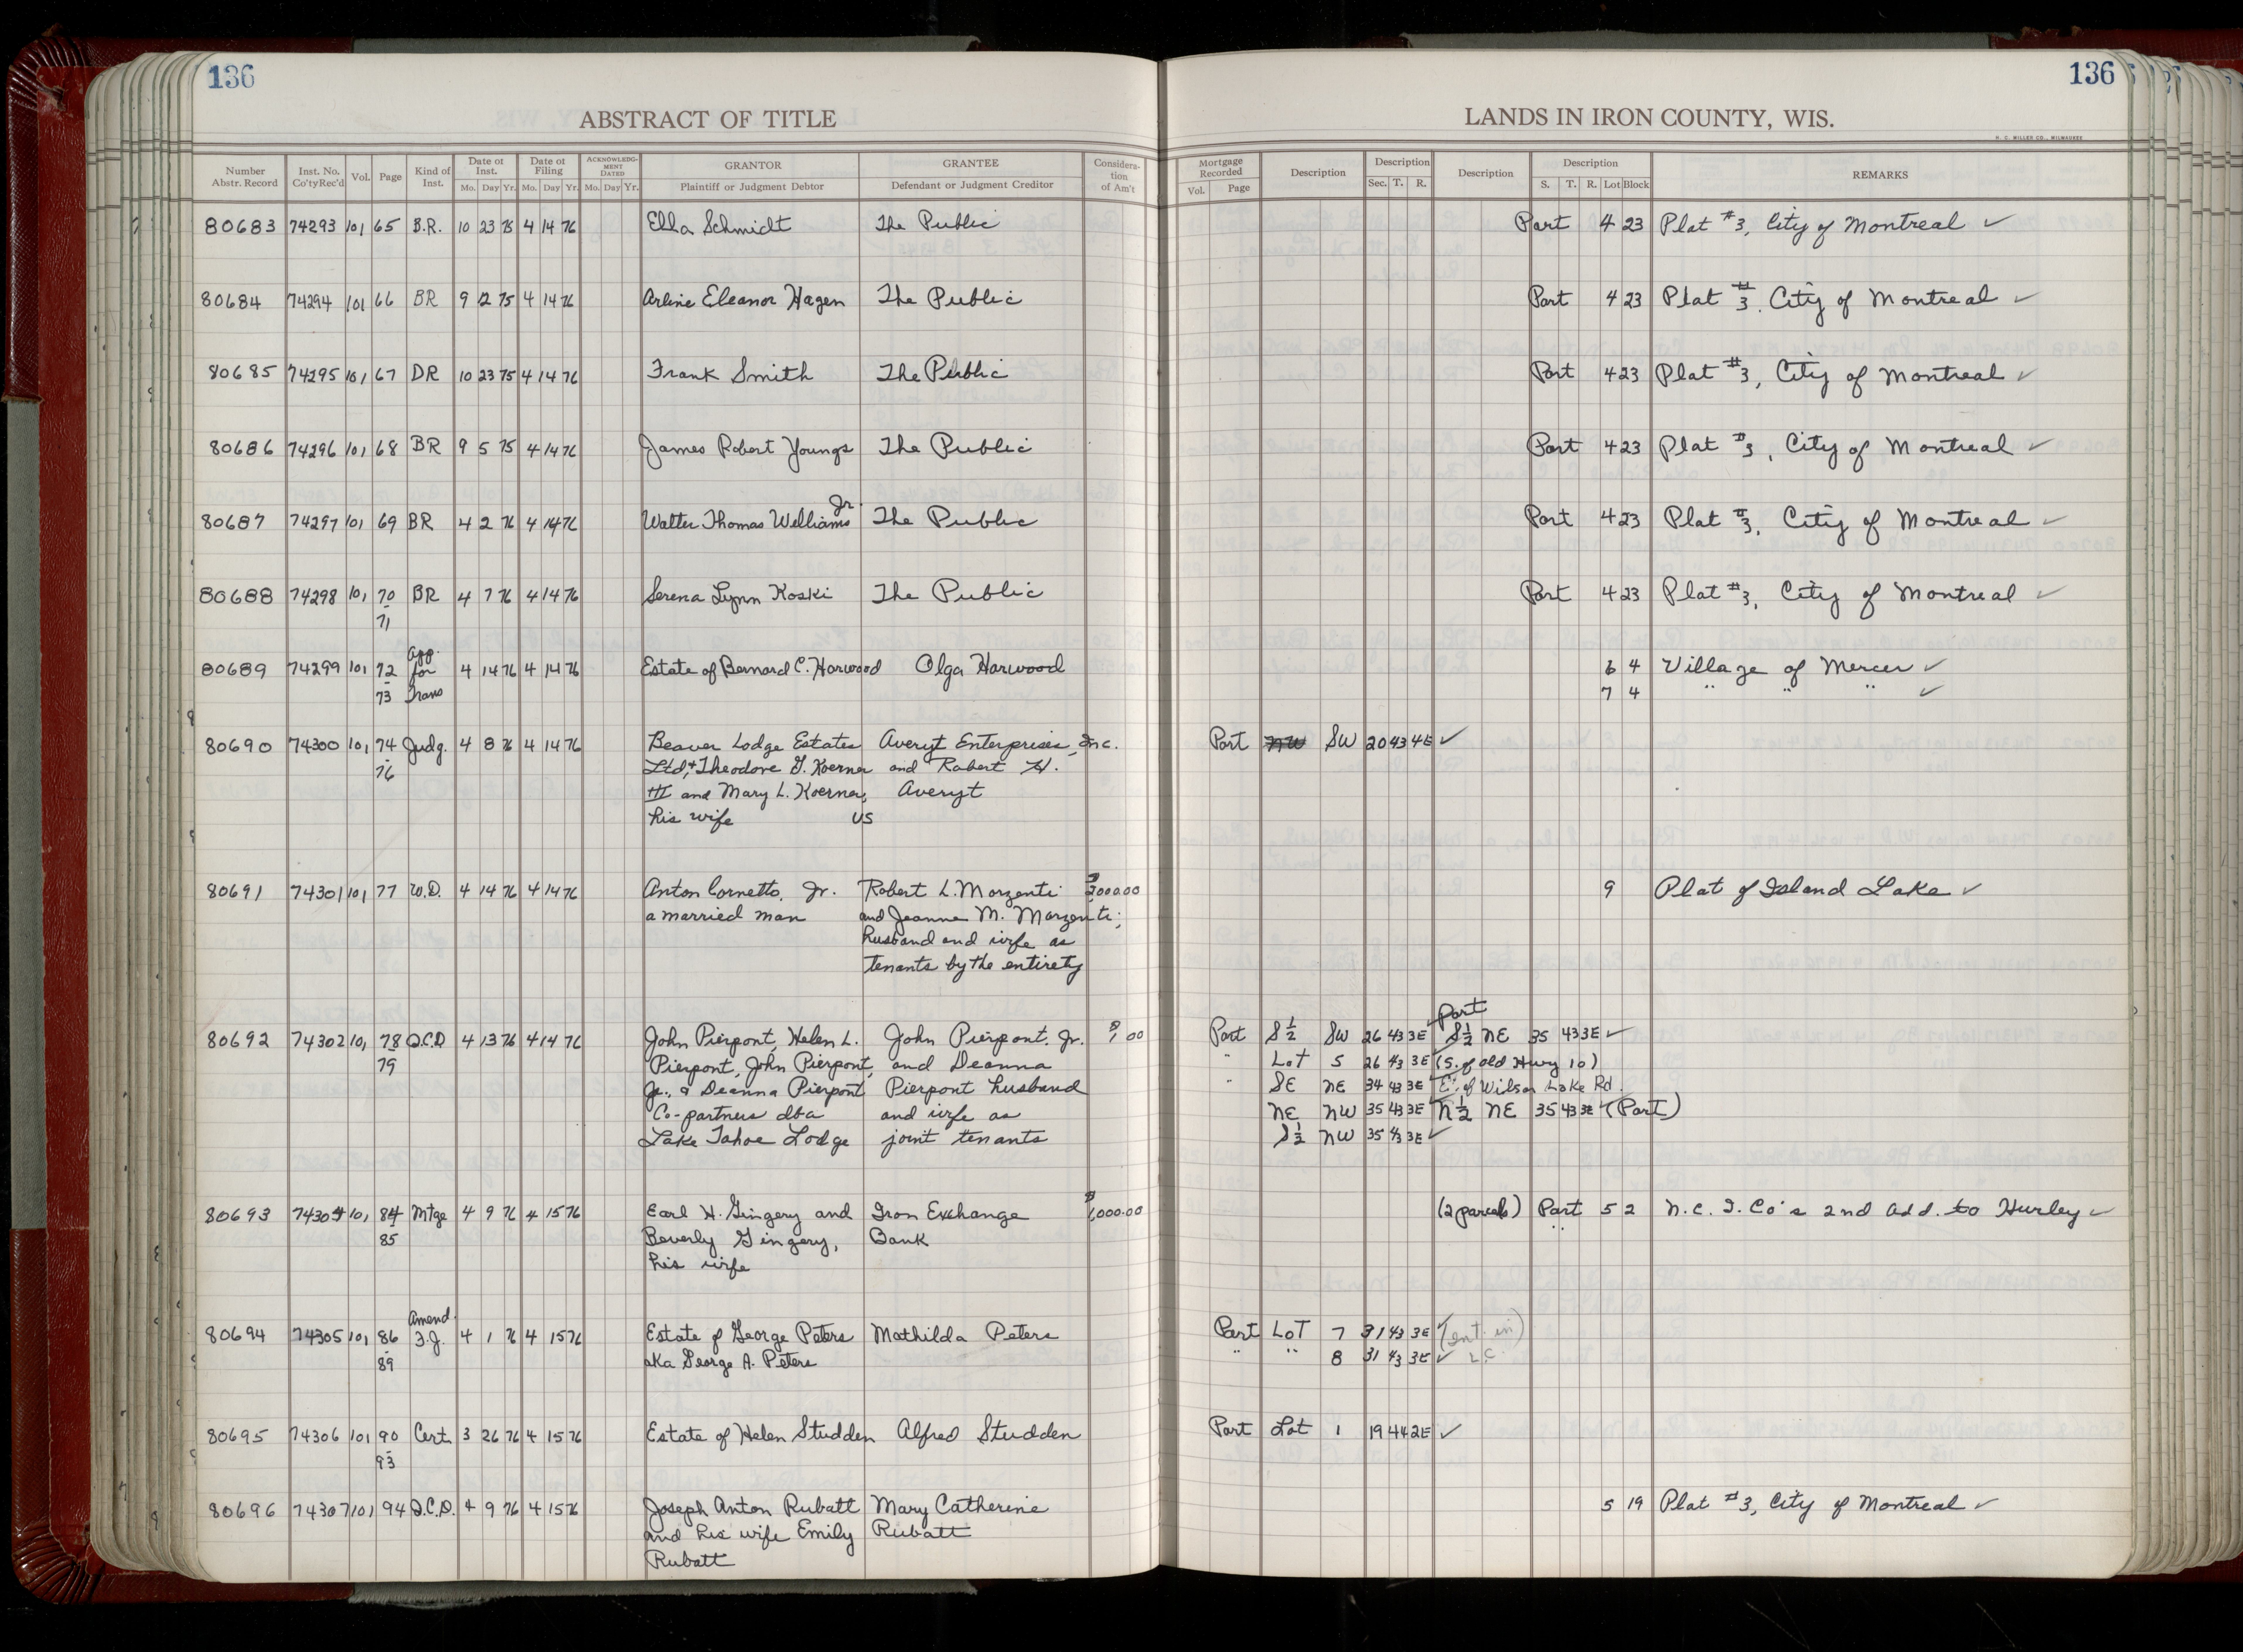 136
136
ABSTRACT OF TITLE
LANDS IN IRON COUNTY, WIS.
H. C. MILLER CO., MILWAUKEE
Number Abstr. Record Inst. No. Co'ty Rec'd Vol. Page Kind of Inst. Date of Inst. Mo. Day Yr. Date of Filing Mo. Day Yr. ACKNOWLEDG-MENT DATED Mo. Day Yr. GRANTOR Plaintiff or Judgment Debtor GRANTEE Defendant or Judgment Creditor Considera-tion of Am't
Mortgage Recorded Vol. Page Description Description Sec. T. R. Description Description S. T. R. Lot Block REMARKS
80683 74293 101 65 B.R. 10 23 75 4 14 76 Ella Schmidt The Public Part 4 23 Plat #3, City of Montreal ✓
80684 74294 101 66 BR 9 12 75 4 14 76 Arline Eleanor Hagen The Public Part 4 23 Plat #3, City of Montreal ✓
80685 74295 101 67 DR 10 23 75 4 14 76 Frank Smith The Public Part 4 23 Plat #3, City of Montreal ✓
80686 74296 101 68 BR 9 5 75 4 14 76 James Robert Youngs The Public Part 4 23 Plat #3, City of Montreal ✓
Jr.
80687 74297 101 69 BR 4 2 76 4 14 76 Walter Thomas Williams The Public Part 4 23 Plat #3, City of Montreal ✓
80688 74298 101 70 BR 4 7 76 4 14 76 Serena Lynn Koski The Public Part 4 23 Plat #3, City of Montreal ✓
- 71
App.
80689 74299 101 72 for 4 14 76 4 14 76 Estate of Bernard C. Harwood Olga Harwood 6 4 Village of Mercer ✓
- 73 Trans 7 4 " " " ✓
80690 74300 101 74 Judg. 4 8 76 4 14 76 Beaver Lodge Estates Averyt Enterprises, Inc. Part NW SW 20 43 4E ✓
- 76 Ltd, + Theodore G. Koerner and Robert H.
III and Mary L. Koerner, Averyt
his wife VS
80691 74301 101 77 W.D. 4 14 76 4 14 76 Anton Cornetto, Jr. Robert L. Marzenti $3,000.00 9 Plat of Island Lake ✓
a married man and Jeanne M. Marzenti,
husband and wife as
tenants by the entirety
Part
80692 74302 101 78 Q.C.D 4 13 76 4 14 76 John Pierpont, Helen L. John Pierpont, Jr. $1.00 Part S½ SW 26 43 3E ✓ S½ NE 35 43 3E ✓
79 Pierpont, John Pierpont, and Deanna " Lot 5 26 43 3E (S. of old Hwy 10)
Jr., & Deanna Pierpont Pierpont husband " SE NE 34 43 3E E. of Wilson Lake Rd.
Co-partners dba and wife as NE NW 35 43 3E N½ NE 35 43 3E ✓ (Part)
Lake Tahoe Lodge joint tenants S½ NW 35 43 3E ✓
80693 74304 101 84 Mtge 4 9 76 4 15 76 Earl H. Gingery and Iron Exchange $1,000.00 (2 parcels) Part 5 2 N.C.I. Co's 2nd Add. to Hurley ✓
85 Beverly Gingery, Bank "
his wife
Amend.
80694 74305 101 86 F.J. 4 1 76 4 15 76 Estate of George Peters Mathilda Peters Part Lot 7 31 43 3E ✓ (ent. in)
- 89 aka George A. Peters " " 8 31 43 3E ✓ L.C.
80695 74306 101 90 Cert. 3 26 76 4 15 76 Estate of Helen Studden Alfred Studden Part Lot 1 19 44 2E ✓
- 93
80696 74307 101 94 Q.C.D. 4 9 76 4 15 76 Joseph Anton Rubatt Mary Catherine 5 19 Plat #3, City of Montreal ✓
and his wife Emily Rubatt
Rubatt